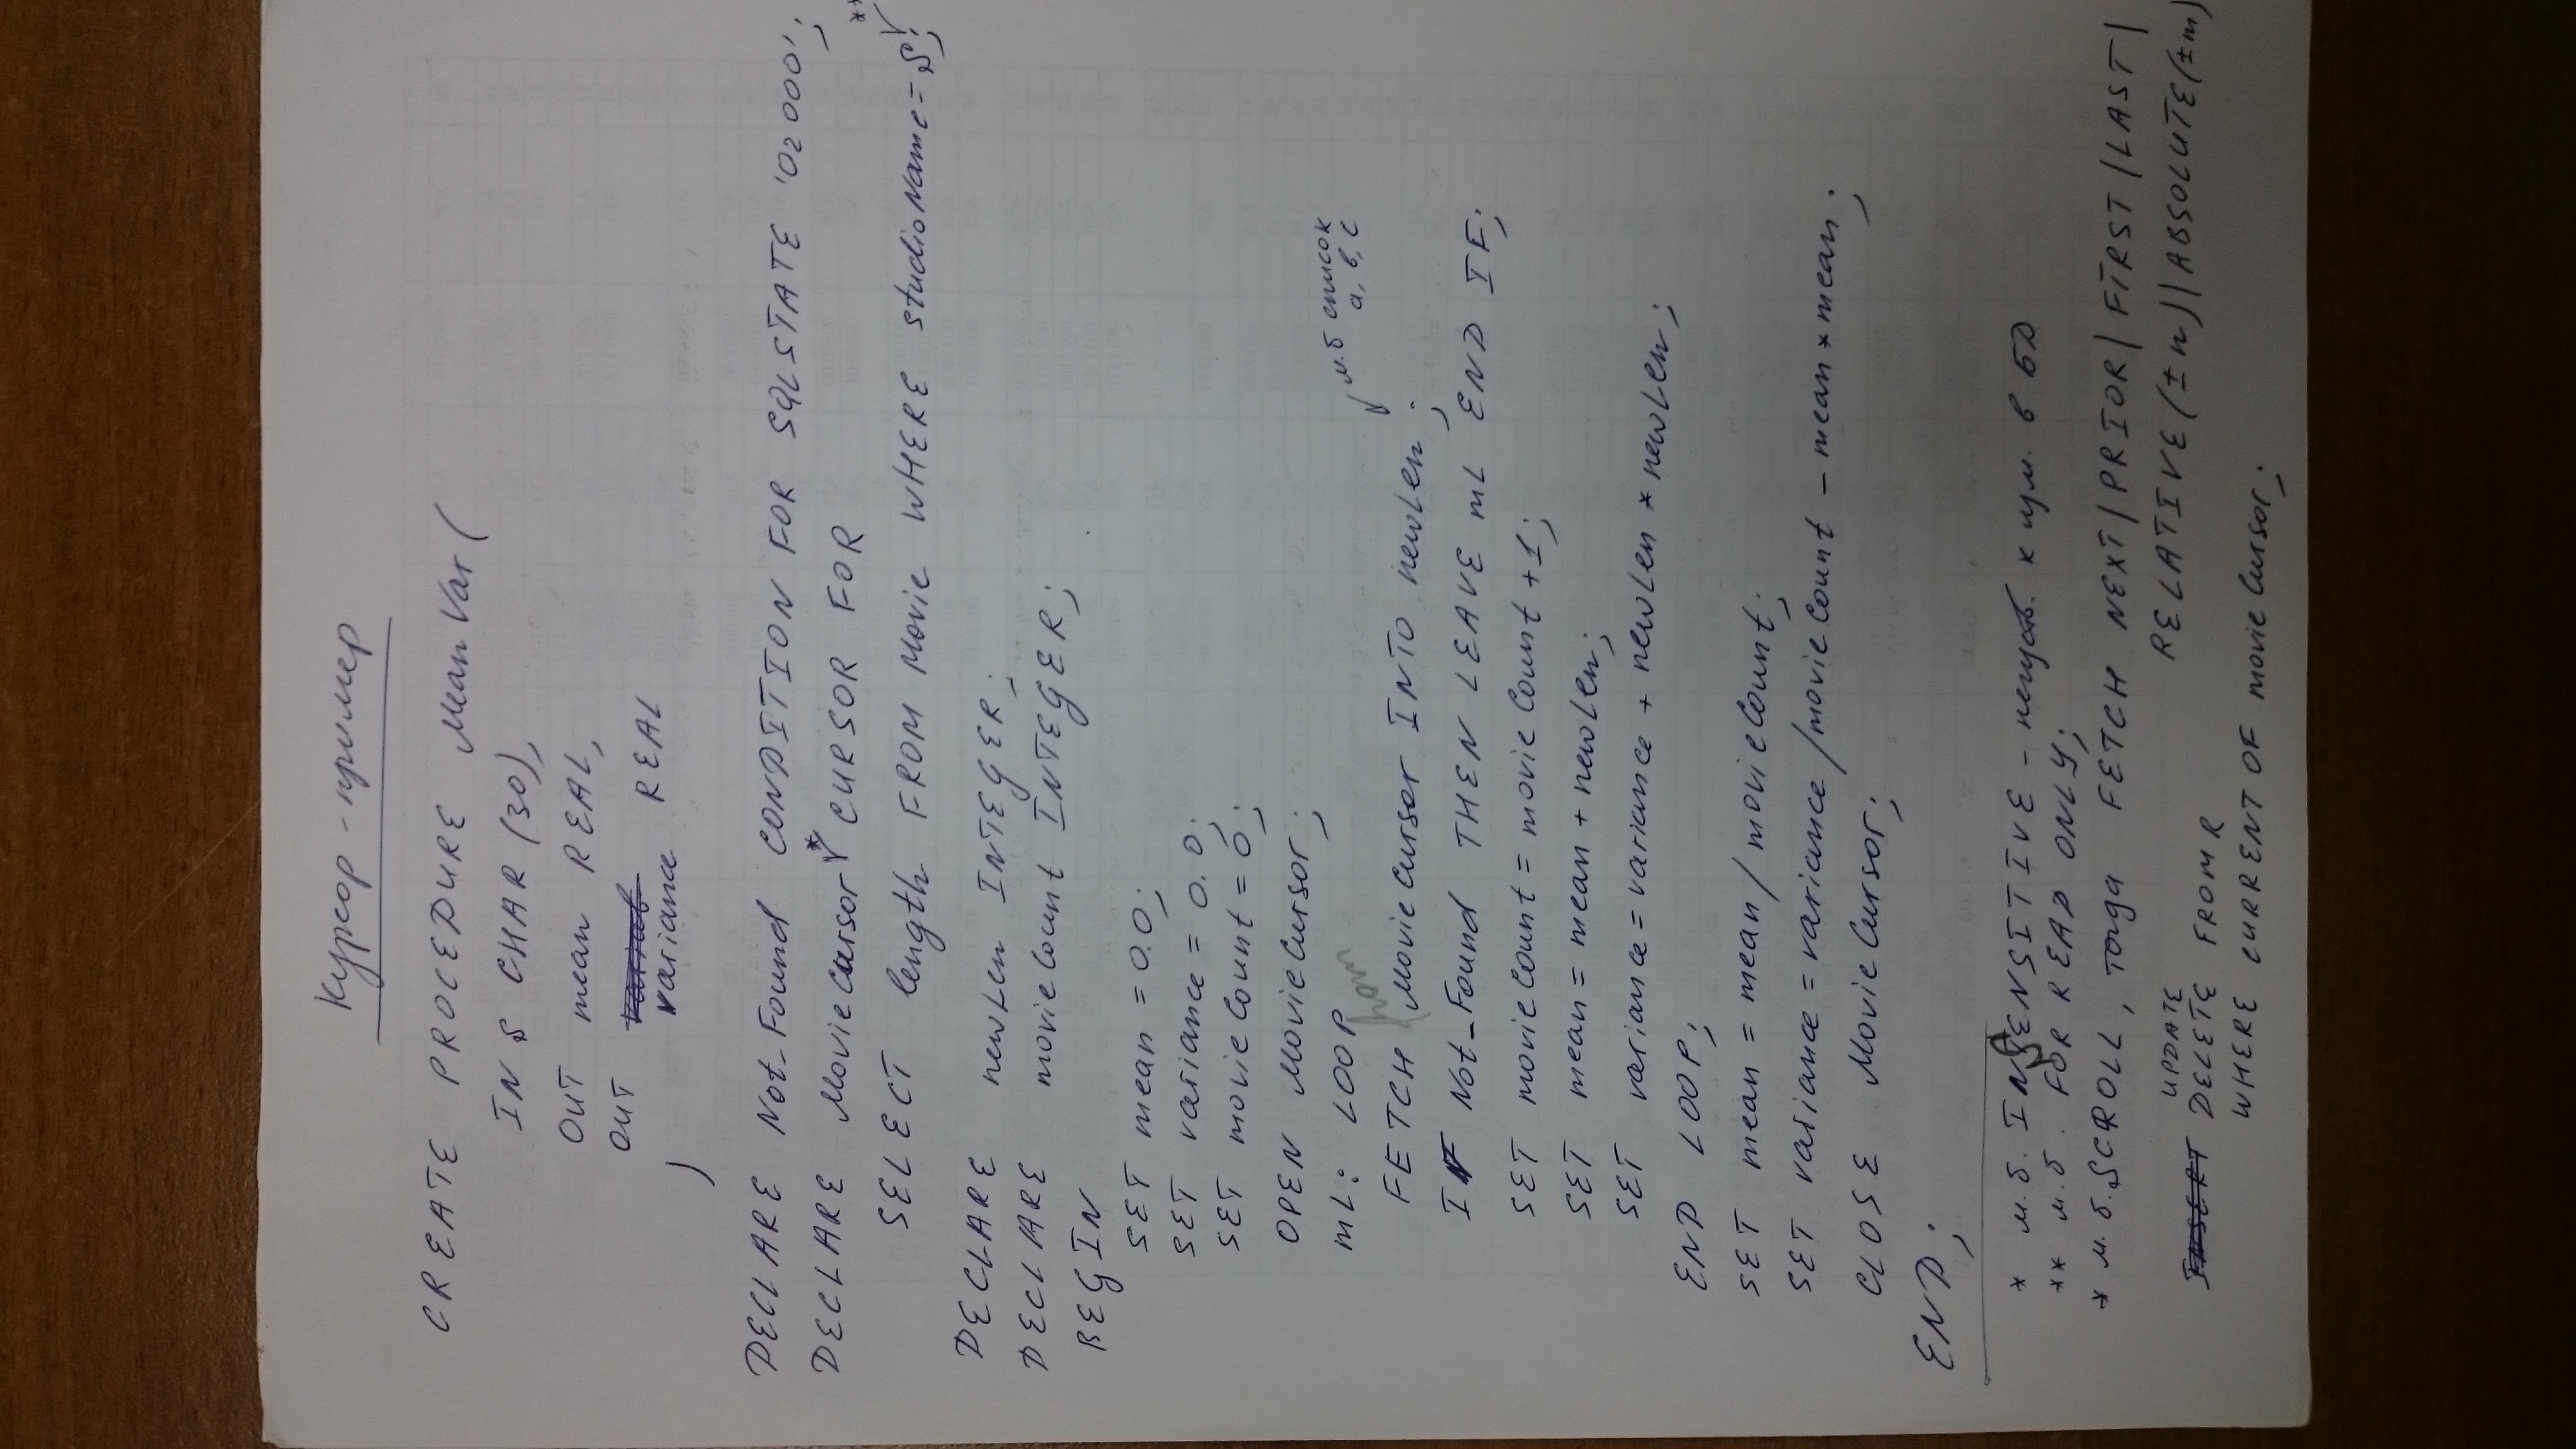 Курсор - пример
CREATE PROCEDURE MeanVar (
IN S CHAR (30),
OUT mean REAL,
OUT variance REAL
)
DECLARE Not_Found CONDITION FOR SQLSTATE '02000';
DECLARE MovieCursor * CURSOR FOR
SELECT length FROM Movie WHERE studioName = S; **
DECLARE newLen INTEGER;
DECLARE movieCount INTEGER;
BEGIN
SET mean = 0.0;
SET variance = 0.0;
SET movieCount = 0;
OPEN MovieCursor;
mL: LOOP
м.б список
a, b, c
FETCH from MovieCursor INTO newLen;
IF Not_Found THEN LEAVE mL END IF;
SET movieCount = movieCount + 1;
SET mean = mean + newLen;
SET variance = variance + newLen * newLen;
END LOOP;
SET mean = mean / movieCount;
SET variance = variance / movieCount - mean * mean;
CLOSE MovieCursor;
END;
* м.б. INSENSITIVE - нечувств. к изм. в БД
** м.б. FOR READ ONLY;
* м.б. SCROLL, тогда FETCH NEXT | PRIOR | FIRST | LAST |
RELATIVE (±n) | ABSOLUTE (±m)
UPDATE
INSERT DELETE FROM R
WHERE CURRENT OF movieCursor;